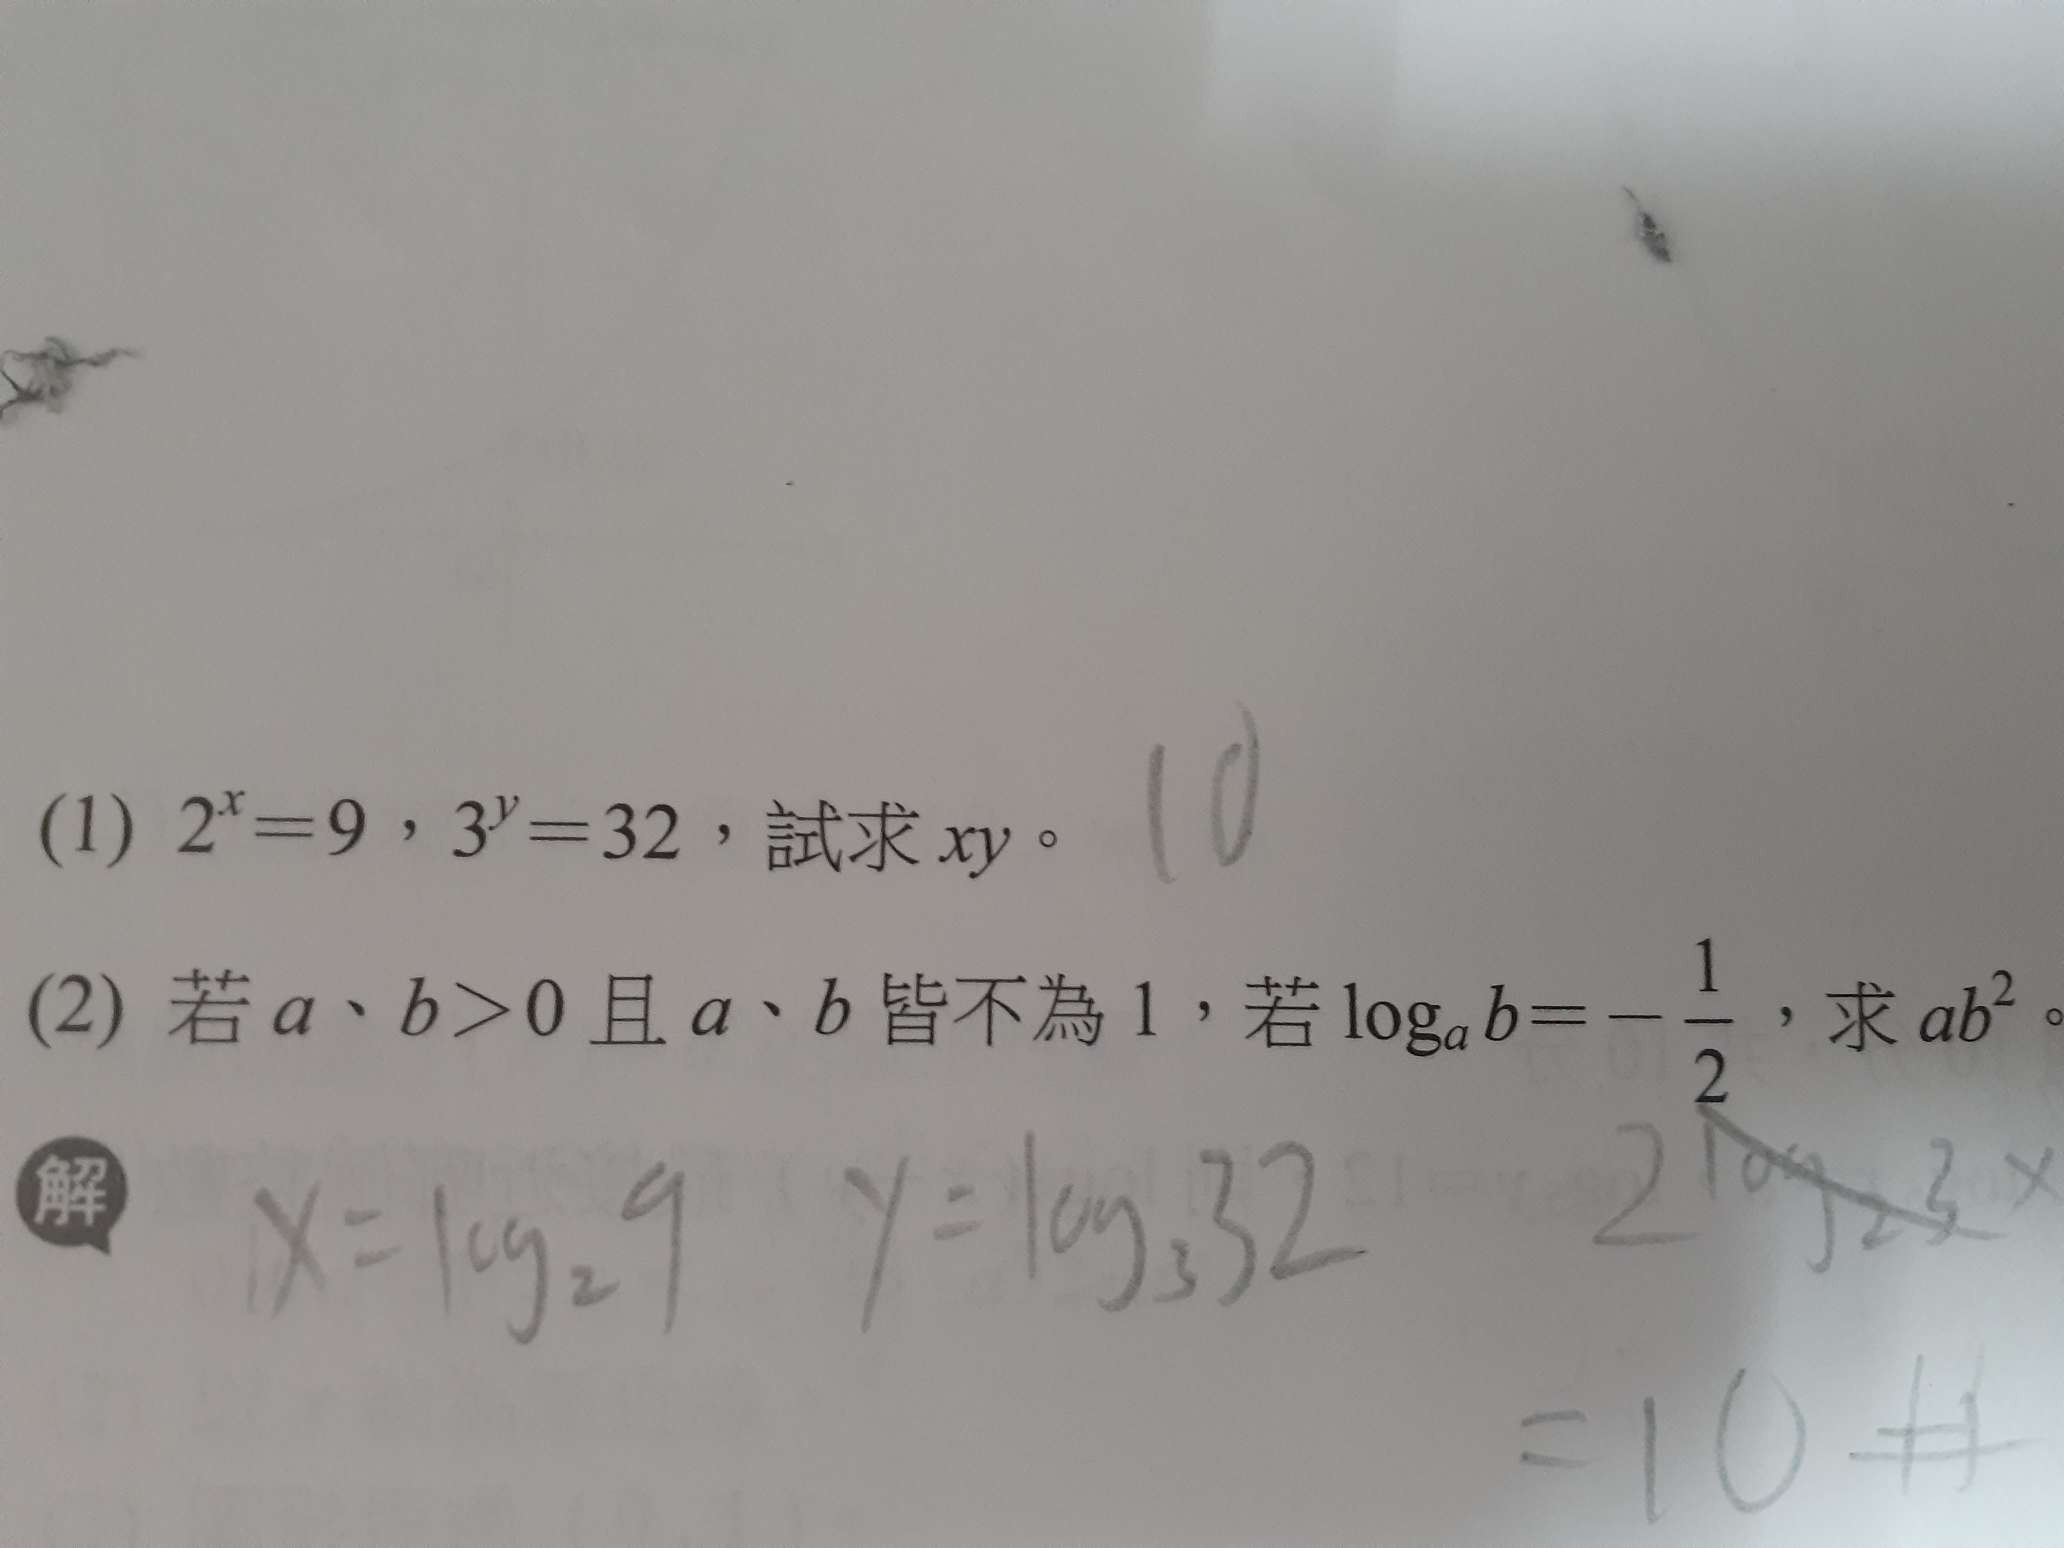 10
(1) 2^x=9，3^y=32，試求 xy。
(2) 若 a、b>0 且 a、b 皆不為 1，若 log_a b=-1/2，求 ab²。
解 x=log₂9 y=log₃32 2log₂3×
=10 #